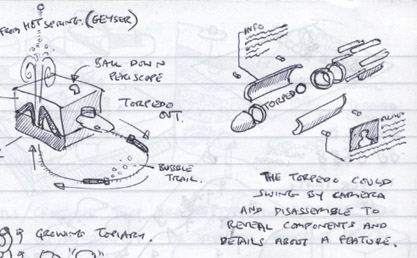 FROM HOT SPRING. (GEYSER)
BALL DOWN
PERISCOPE
TORPEDO
OUT.
BUBBLE
TRAIL.
GROWING TOPIARY.
INFO
TORPEDO
THE TORPEDO COULD
SWING BY CAMERA
AND DISASSEMBLE TO
REVEAL COMPONENTS AND
DETAILS ABOUT A FEATURE.